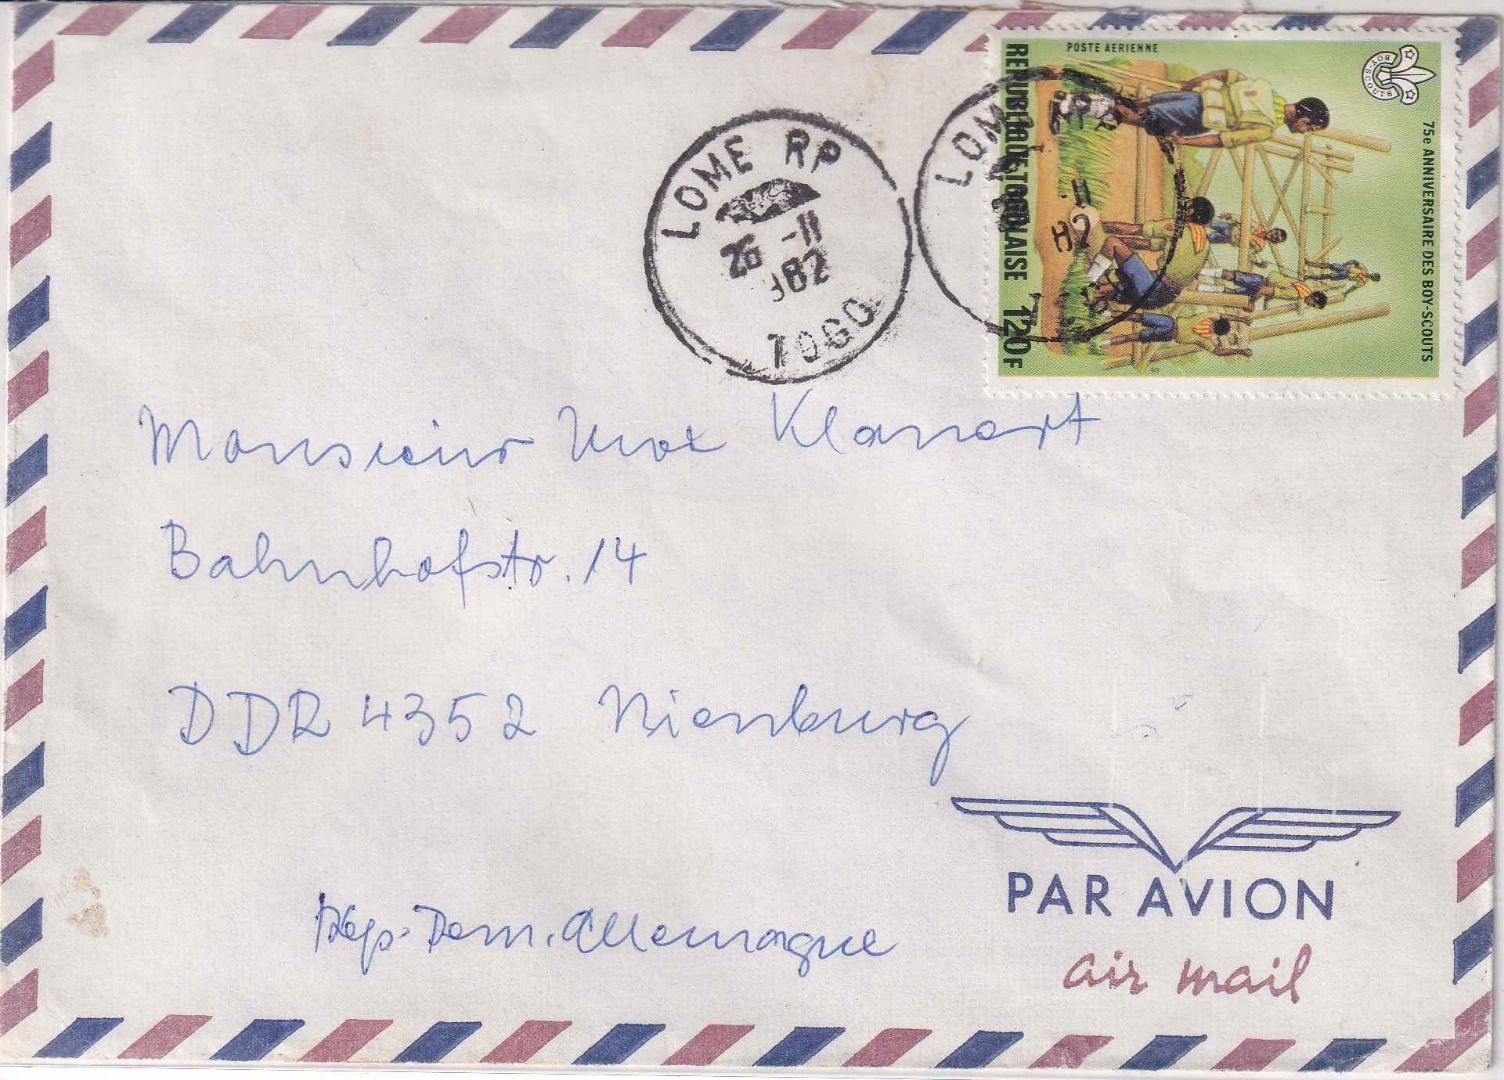 POSTE AERIENNE
REPUBLIQUE TOGOLAISE 120F
75e ANNIVERSAIRE DES BOY-SCOUTS
BOY-SCOUTS
LOME RP
26 -11
982
TOGO
LOM
82
Monsieur Max Klanert
Bahnhofstr. 14
DDR 4352 Nienburg
Rép. Dem. Allemagne
PAR AVION
air mail